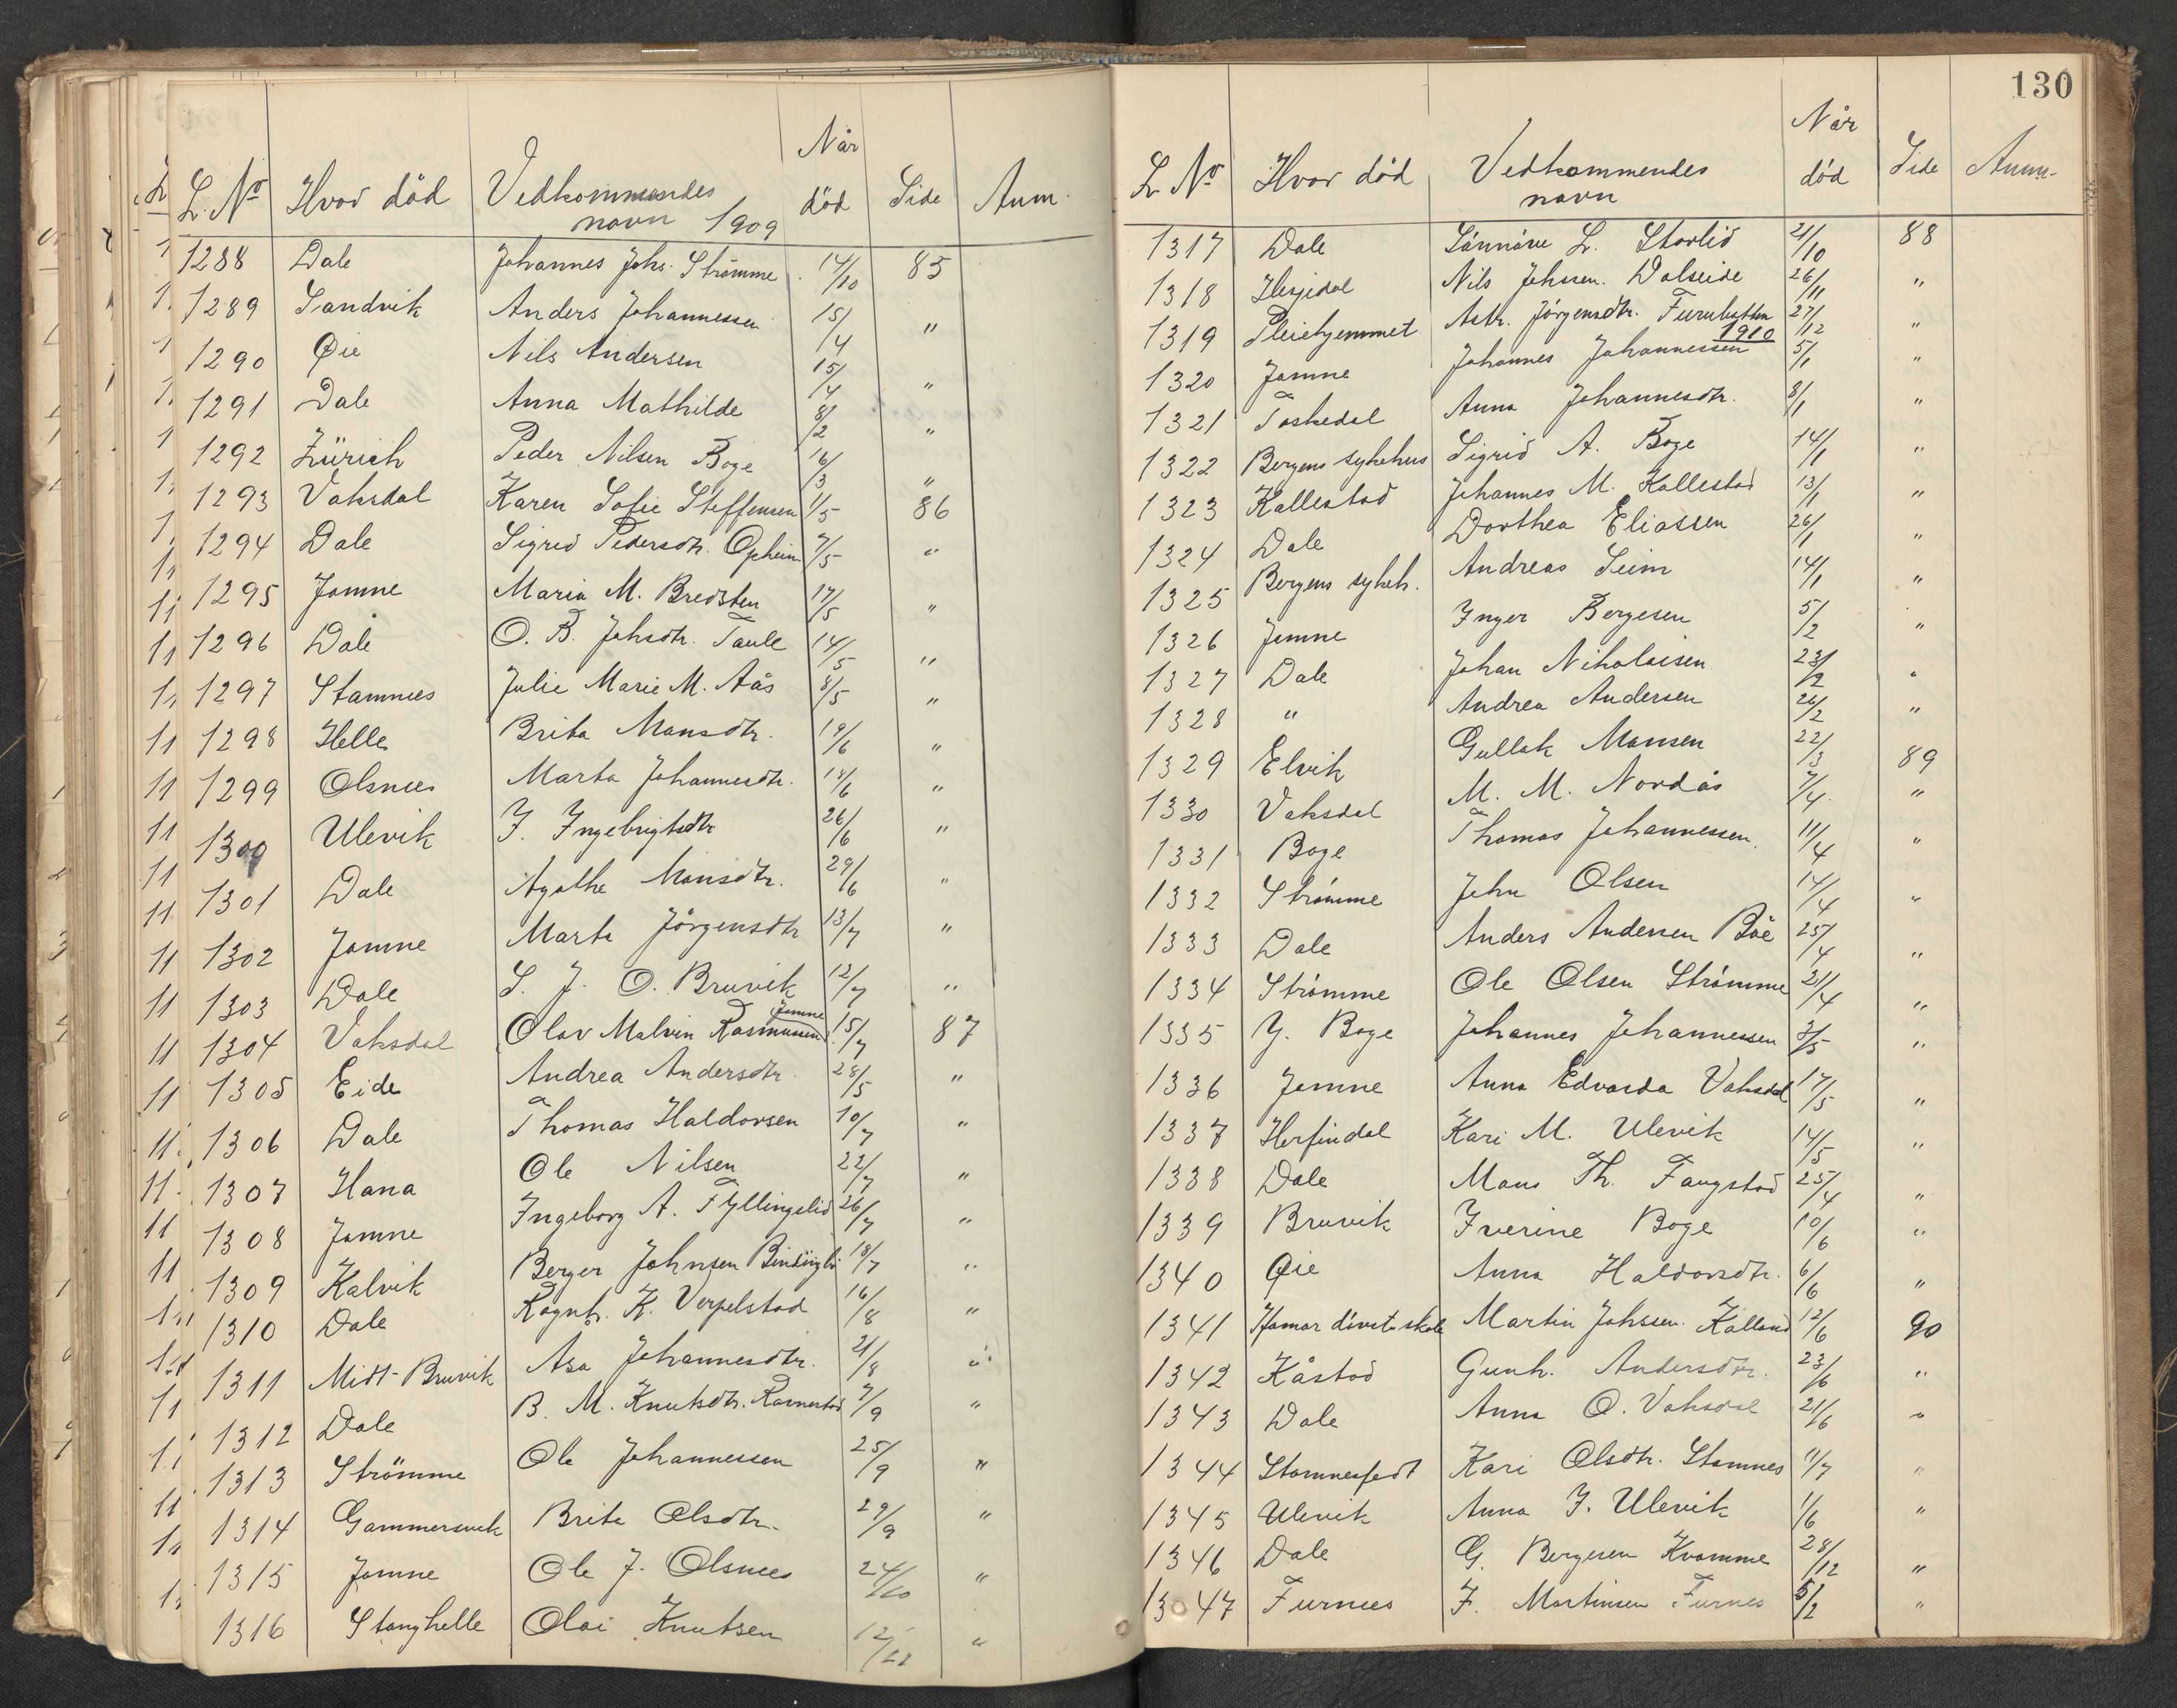 L. No Hvor död Vedkommendes navn 1909 Når död Side Anm.
1288 Dale Johannes Johs. Strømme 14/10 85
1289 Sandvik Anders Johannessen 15/4 "
1290 Øie Nils Andersen 15/4 "
1291 Dale Anna Mathilde 8/2 "
1292 Zürich Peder Nilsen Boge 16/3 "
1293 Vaksdal Karen Sofie Steffensen 1/5 86
1294 Dale Sigrid Pedersdtr. Opheim 7/5 "
1295 Jamne Maria M. Bredsten 17/5 "
1296 Dale O. B. Johsdtr. Taule 14/5 "
1297 Stamnes Julie Marie M. Aås 8/5 "
1298 Helle Brita Monsdtr. 19/6 "
1299 Olsnes Marta Johannesdtr. 18/6 "
1300 Ulevik I. Ingebrigtsdtr 26/6 "
1301 Dale Agathe Monsdtr. 29/6 "
1302 Jamne Marta Jörgensdtr 13/7 "
1303 Dale S. J. O. Bruvik 12/7 "
1304 Vaksdal Olav Malvin Rasmussen Jamne 15/7 87
1305 Eide Andrea Andersdtr. 28/5 "
1306 Dale Thomas Haldorsen 10/7 "
1307 Hana Ole Nilsen 22/7 "
1308 Jamne Ingeborg A. Fyllingslid 26/7 "
1309 Kalvik Berger Johnsen 18/7 "
1310 Dale Ragnh. K. Verpelstad 16/8 "
1311 Midt-Bruvik Asa Johannesdtr. 21/8 "
1312 Dale B. M. Knutsdtr. Ravnestad 7/9 "
1313 Strömme Ole Johannessen 25/9 "
1314 Gammersvik Brita Olsdtr. 29/9 "
1315 Jamne Ole J. Olsnes 24/10 "
1316 Stanghelle Olai Knutsen "
130
L. No Hvor död Vedkommendes navn Når död Side Anm.
1317 Dale L. Storlid 21/10 88
1318 Hesjedal Nils Johssen. Dalseide 26/11 "
1319 Pleiehjemmet Astr. Jörgensdtr. Furubotten 27/12 "
1910
1320 Jamne Johannes Johannessen 5/1 "
1321 Toskedal Anna Johannesdtr. 8/1 "
1322 Bergens sykehus Sigrid A. Boge 14/1 "
1323 Kallestad Johannes M. Kallestad 13/1 "
1324 Dale Dorthea Eliassen 26/1 "
1325 Bergens sykeh. Andreas Seim 14/1 "
1326 Jamne Inger Bergesen 5/2 "
1327 Dale Johan Nikolaisen 23/2 "
1328 " Andrea Andersen 26/2 "
1329 Elvik Gullak Monsen 22/3 89
1330 Vaksdal M. M. Nordås 7/4 "
1331 Boge Thomas Johannessen. 11/4 "
1332 Strømme John Olsen 14/4 "
1333 Dale Anders Andersen Böe 25/4 "
1334 Strømme Ole Olsen Strømme 21/4 "
1335 Y. Boge Johannes Johannessen 3/5 "
1336 Jamne Anna Edvarda Vaksdal 17/5 "
1337 Herfindal Kari M. Ulevik 14/5 "
1338 Dale Mons Th. Fangstad 25/4 "
1339 Bruvik Iverine Boge 10/6 "
1340 Øie Anna Haldorsdtr. 6/6 "
1341 Hamar Martin Johssen. Kalland 12/6 90
1342 Kåstad Gunh. Andersdtr. 23/6 "
1343 Dale Anna O. Vaksdal 21/6 "
1344 Kari Olsdtr. Stamnes 11/7 "
1345 Ulevik Anna J. Ulevik 1/6 "
1346 Dale G. Bergesen Kvamme 28/12 "
1347 Furnes J. Martinsen Furnes 5/2 "